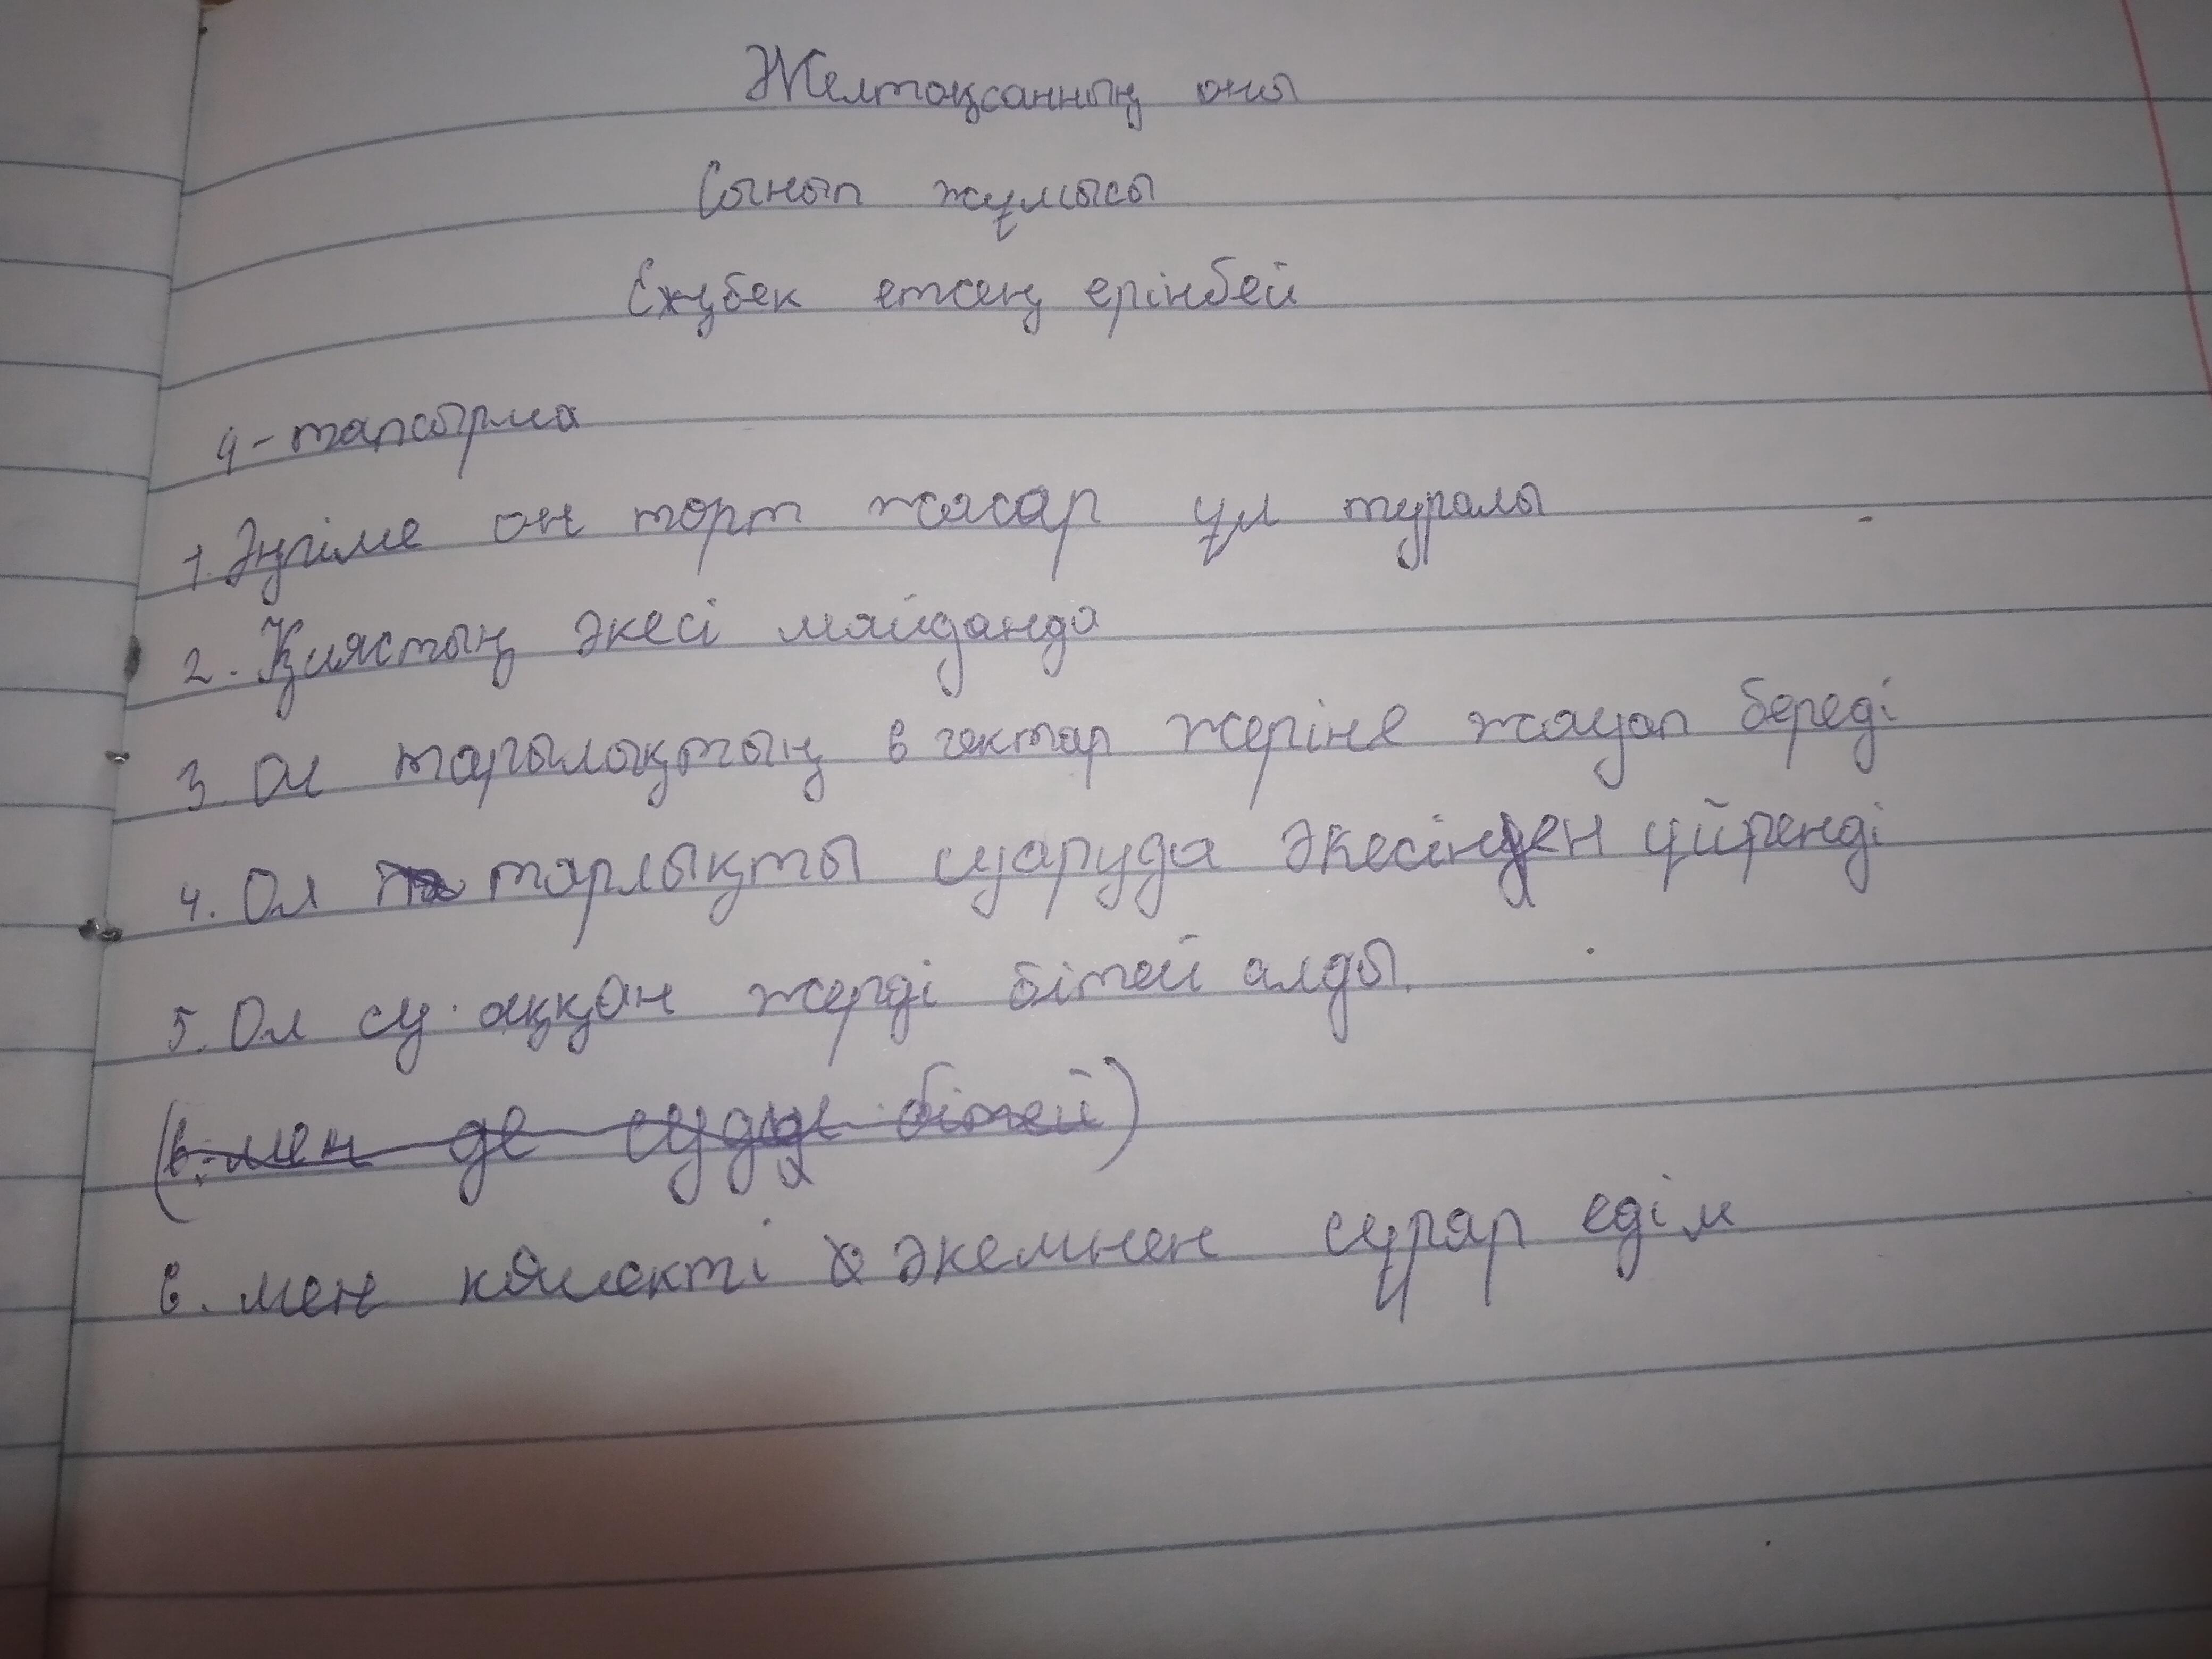 Желтоқсанның оны
Сынып жұмысы
Еңбек етсең ерінбей
4-тапсырма
1. Әңгіме он торт жасар ұл туралы
2. Қиястың әкесі майданда
3. Ол тарылықтың 6 гектар жеріне жауап береді
4. Ол тарлықты суаруда әкесінден үйренді
5. Ол су аққан жерді бітей алды.
(6. мен де бітей)
6. мен көмекті әкемнен сұрар едім